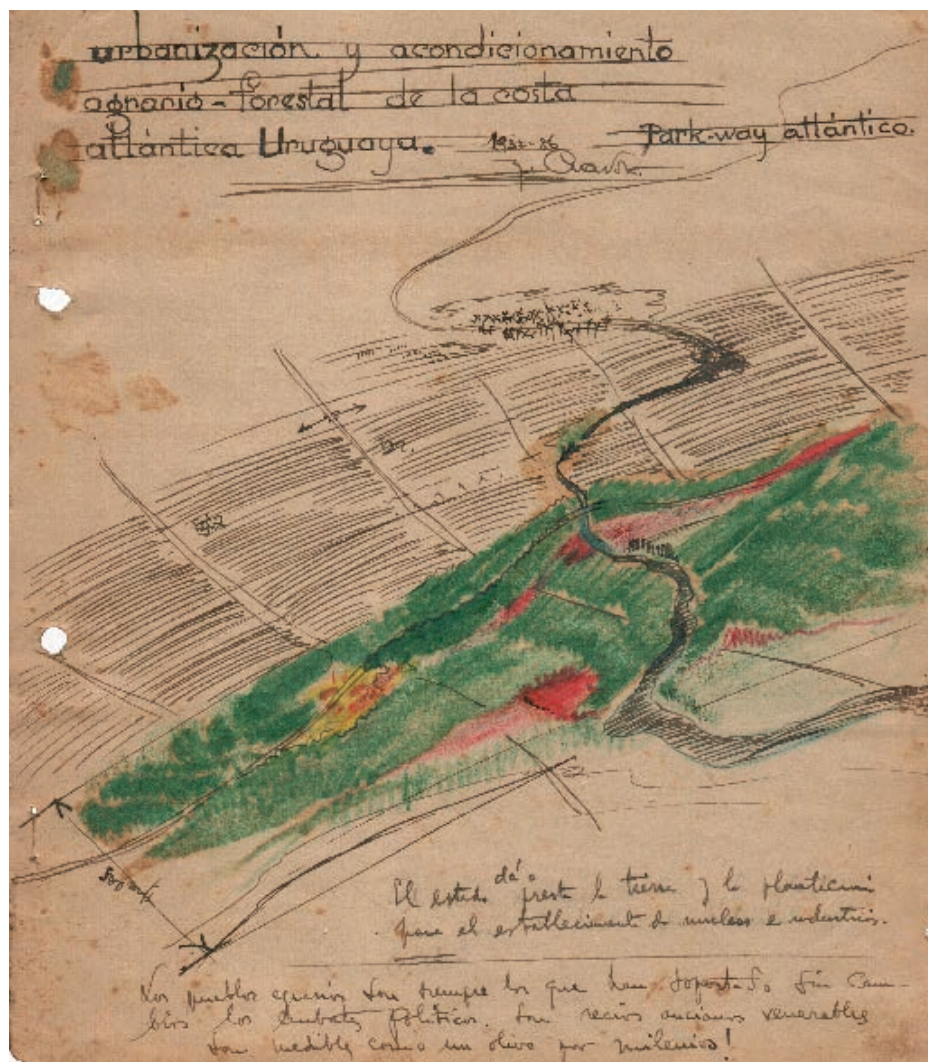 urbanización y acondicionamiento
agrario-forestal de la costa
atlántica Uruguaya.
Park-way atlántico.
El estado dá o presta la tierra y la
para el establecimiento de nucleos e industrias.
Los pueblos agrarios son siempre los que han soportado sin cam-
bios los embates políticos. Son recios ancianos venerables
son medibles como un olivo por milenios!